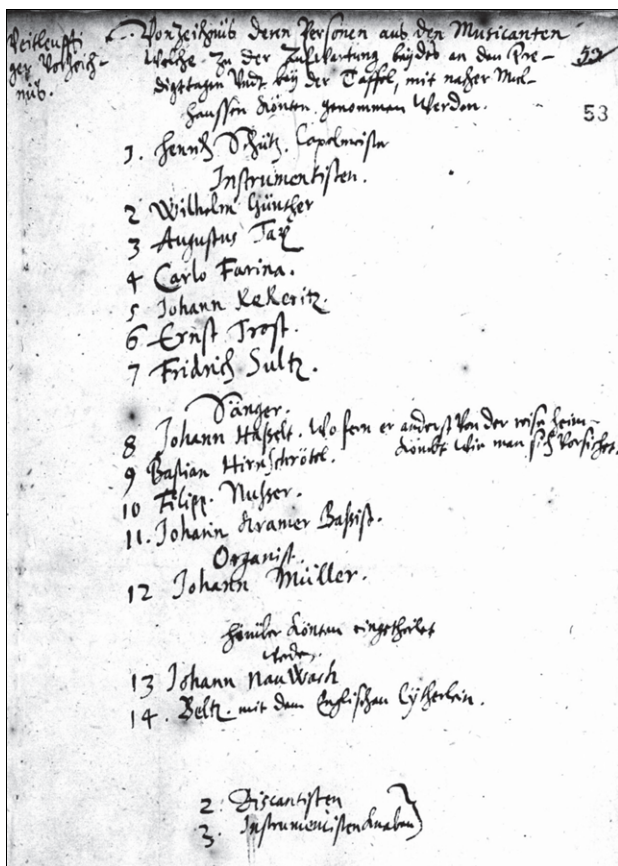 Weitleufftiger Vorzeichnüs.
Vorzeichnüs deren Personen aus den Musicanten
Welche zu der Auffwartung beydes an den Pre-
digttagen Vndt bey der Taffel, mit naher Mul-
haussen könten genommen Werden.
53
53
1. Henrich Schütz. Capelmeister
Instrumentisten.
2 Wilhelm Günther
3 Augustus Tax
4 Carlo Farina.
5 Johann KeKeritz.
6 Ernst Trost.
7 Fridrich Sultz.
Sänger.
8 Johann Hasselt. Wo fern er anderst Von der reise heim-
kömbt Wie man sich Vorsichet.
9 Bastian Hirnschrötel.
10 Filipp. Nusser.
11. Johann Kramer Bassist.
Organist.
12 Johann Müller.
hierüber könten eingetheilet
werden.
13 Johann NauWach
14. Beltz. mit dem Englischen Cytherlein.
2. Discantisten
3. Instrumentistenknaben